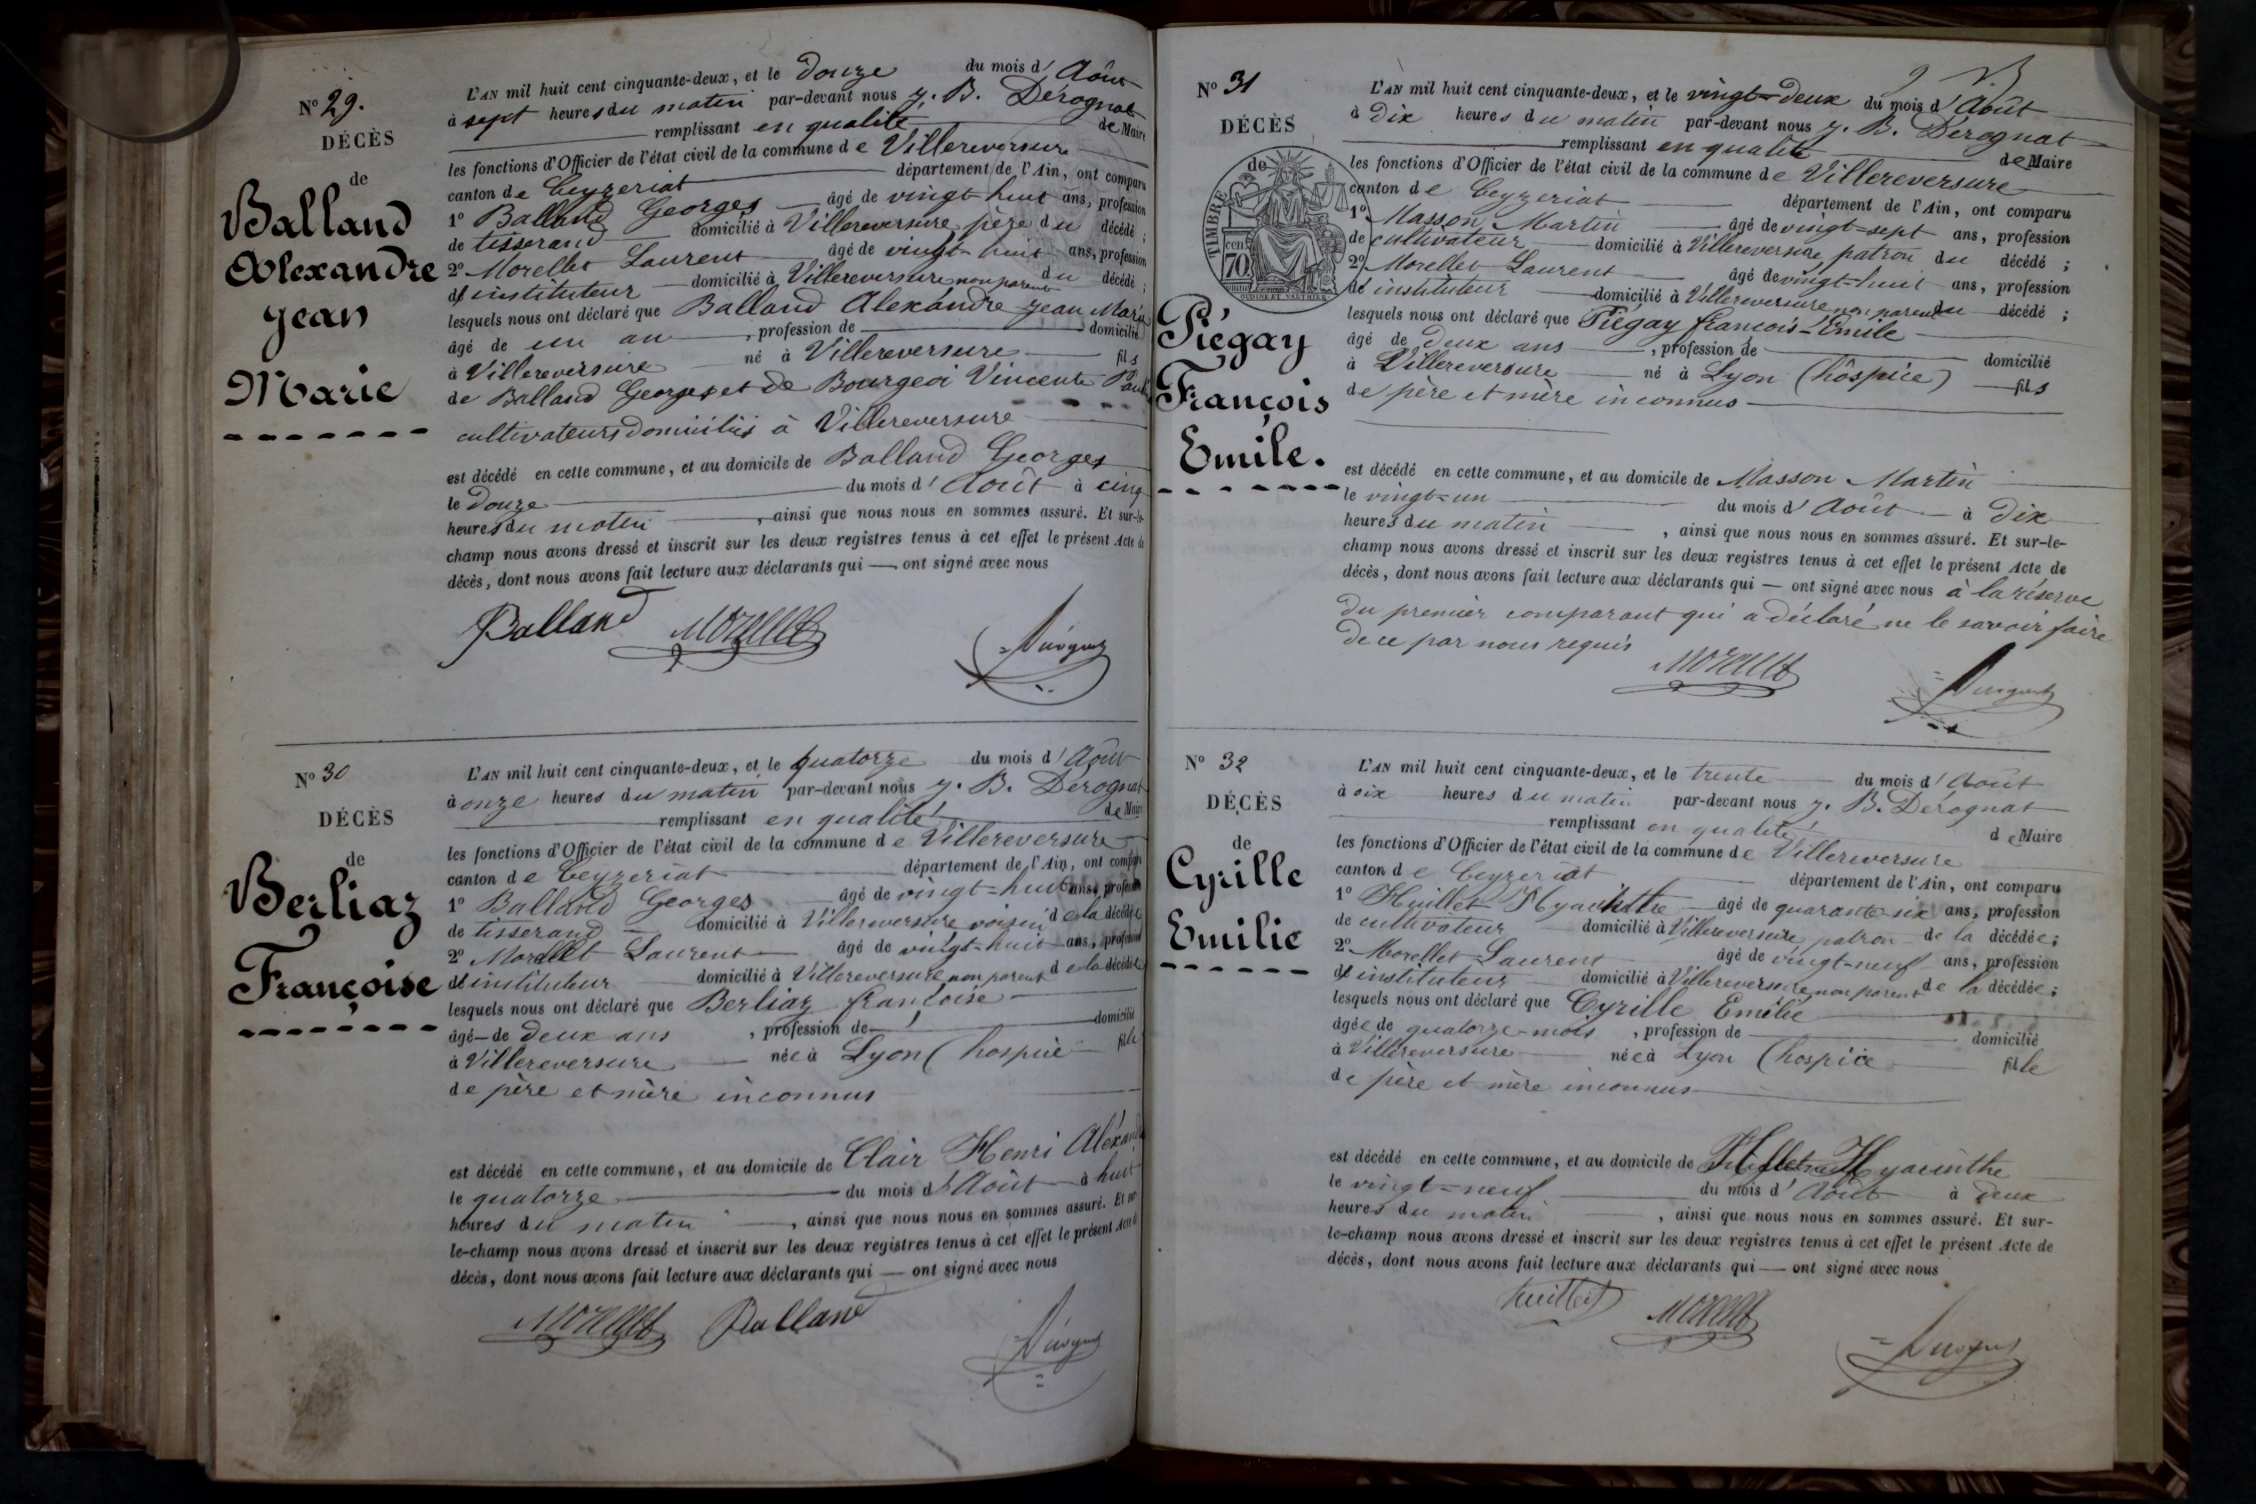 N° 29.
DÉCÈS
de
Balland
Alexandre
Jean
Marie
L'AN mil huit cent cinquante-deux, et le douze du mois d' Août
à sept heures du matin par-devant nous J. B. Dérognat
remplissant en qualité de Maire
les fonctions d'Officier de l'état civil de la commune de Villereversure
canton de Ceyzeriat département de l'Ain, ont comparu
1° Balland Georges âgé de vingt huit ans, profession
de tisserand domicilié à Villereversure père du décédé ;
2° Morellet Laurent âgé de vingt-huit ans, profession
d'instituteur domicilié à Villereversure non parent du décédé ;
lesquels nous ont déclaré que Balland Alexandre Jean Marie
âgé de un an , profession de domicilié
à Villereversure né à Villereversure fils
de Balland Georges et de Bourgeoi Vincente
cultivateurs domiciliés à Villereversure
est décédé en cette commune, et au domicile de Balland Georges
le douze du mois d' Août à cinq
heures du matin , ainsi que nous nous en sommes assuré. Et sur-le-
champ nous avons dressé et inscrit sur les deux registres tenus à cet effet le présent Acte de
décès, dont nous avons fait lecture aux déclarants qui — ont signé avec nous
Balland Morellet Dérognat
N° 30
DÉCÈS
de
Berliaz
Françoise
L'AN mil huit cent cinquante-deux, et le quatorze du mois d' Août
à onze heures du matin par-devant nous J. B. Dérognat
remplissant en qualité de Maire
les fonctions d'Officier de l'état civil de la commune de Villereversure
canton de Ceyzeriat département de l'Ain, ont comparu
1° Balland Georges âgé de vingt-huit ans, profession
de tisserand domicilié à Villereversure voisin de la décédée
2° Morellet Laurent âgé de vingt-huit ans, profession
d'instituteur domicilié à Villereversure non parent de la décédée
lesquels nous ont déclaré que Berliaz françoise
âgé de deux ans , profession de domicilié
à Villereversure née à Lyon (hospice fille
de père et mère inconnus
est décédé en cette commune, et au domicile de Clair Henri Alexandre
le quatorze du mois d' Août à huit
heures du matin , ainsi que nous nous en sommes assuré. Et sur-
le-champ nous avons dressé et inscrit sur les deux registres tenus à cet effet le présent Acte de
décès, dont nous avons fait lecture aux déclarants qui — ont signé avec nous
Morellet Balland Dérognat
N° 31
DÉCÈS
de
TIMBRE
cen.
70
OUDINE ET VAUTHIER
Piégay
François
Emile.
L'AN mil huit cent cinquante-deux, et le vingt-deux du mois d' Août
à dix heures du matin par-devant nous J. B. Dérognat
remplissant en qualité de Maire
les fonctions d'Officier de l'état civil de la commune de Villereversure
canton de Ceyzeriat département de l'Ain, ont comparu
1° Masson Martin âgé de vingt-sept ans, profession
de cultivateur domicilié à Villereversure patron du décédé ;
2° Morellet Laurent âgé de vingt-huit ans, profession
d'instituteur domicilié à Villereversure non parent du décédé ;
lesquels nous ont déclaré que Piégay françois-Emile
âgé de deux ans , profession de domicilié
à Villereversure né à Lyon (hôspice) fils
de père et mère inconnus
est décédé en cette commune, et au domicile de Masson Martin
le vingt-un du mois d' Août à dix
heures du matin , ainsi que nous nous en sommes assuré. Et sur-le-
champ nous avons dressé et inscrit sur les deux registres tenus à cet effet le présent Acte de
décès, dont nous avons fait lecture aux déclarants qui — ont signé avec nous à la réserve
du premier comparant qui a déclaré ne le savoir faire
de ce par nous requis
Morellet Dérognat
N° 32
DÉCÈS
de
Cyrille
Emilie
L'AN mil huit cent cinquante-deux, et le trente du mois d' Août
à six heures du matin par-devant nous J. B. Dérognat
remplissant en qualité de Maire
les fonctions d'Officier de l'état civil de la commune de Villereversure
canton de Ceyzeriat département de l'Ain, ont comparu
1° Huillet Hyacinthe âgé de quarante-six ans, profession
de cultivateur domicilié à Villereversure patron de la décédée ;
2° Morellet Laurent âgé de vingt-neuf ans, profession
d'instituteur domicilié à Villereversure non parent de la décédée ;
lesquels nous ont déclaré que Cyrille Emélie
âgée de quatorze-mois , profession de domicilié
à Villereversure née à Lyon (hospice fille
de père et mère inconnus
est décédé en cette commune, et au domicile de Huillet Hyacinthe
le vingt-neuf du mois d' Août à deux
heures du matin , ainsi que nous nous en sommes assuré. Et sur-
le-champ nous avons dressé et inscrit sur les deux registres tenus à cet effet le présent Acte de
décès, dont nous avons fait lecture aux déclarants qui — ont signé avec nous
huillet Morellet Dérognat